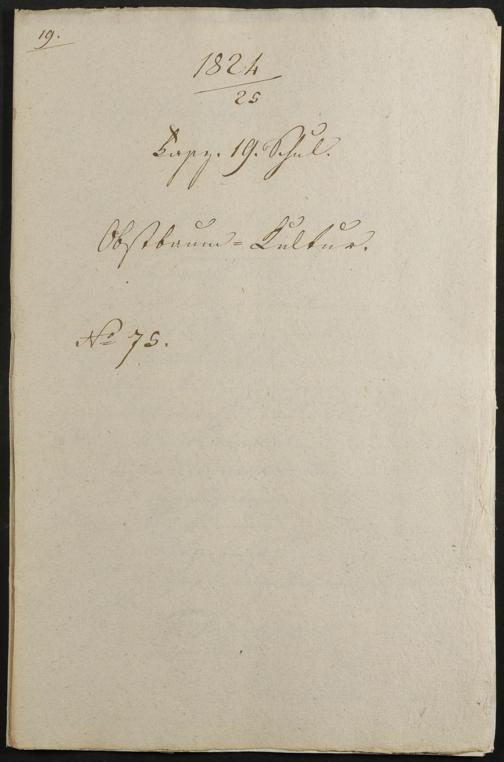 19.
1824
25
Capp. 19. Schul.
Obstbaum=Cultur.
No 75.